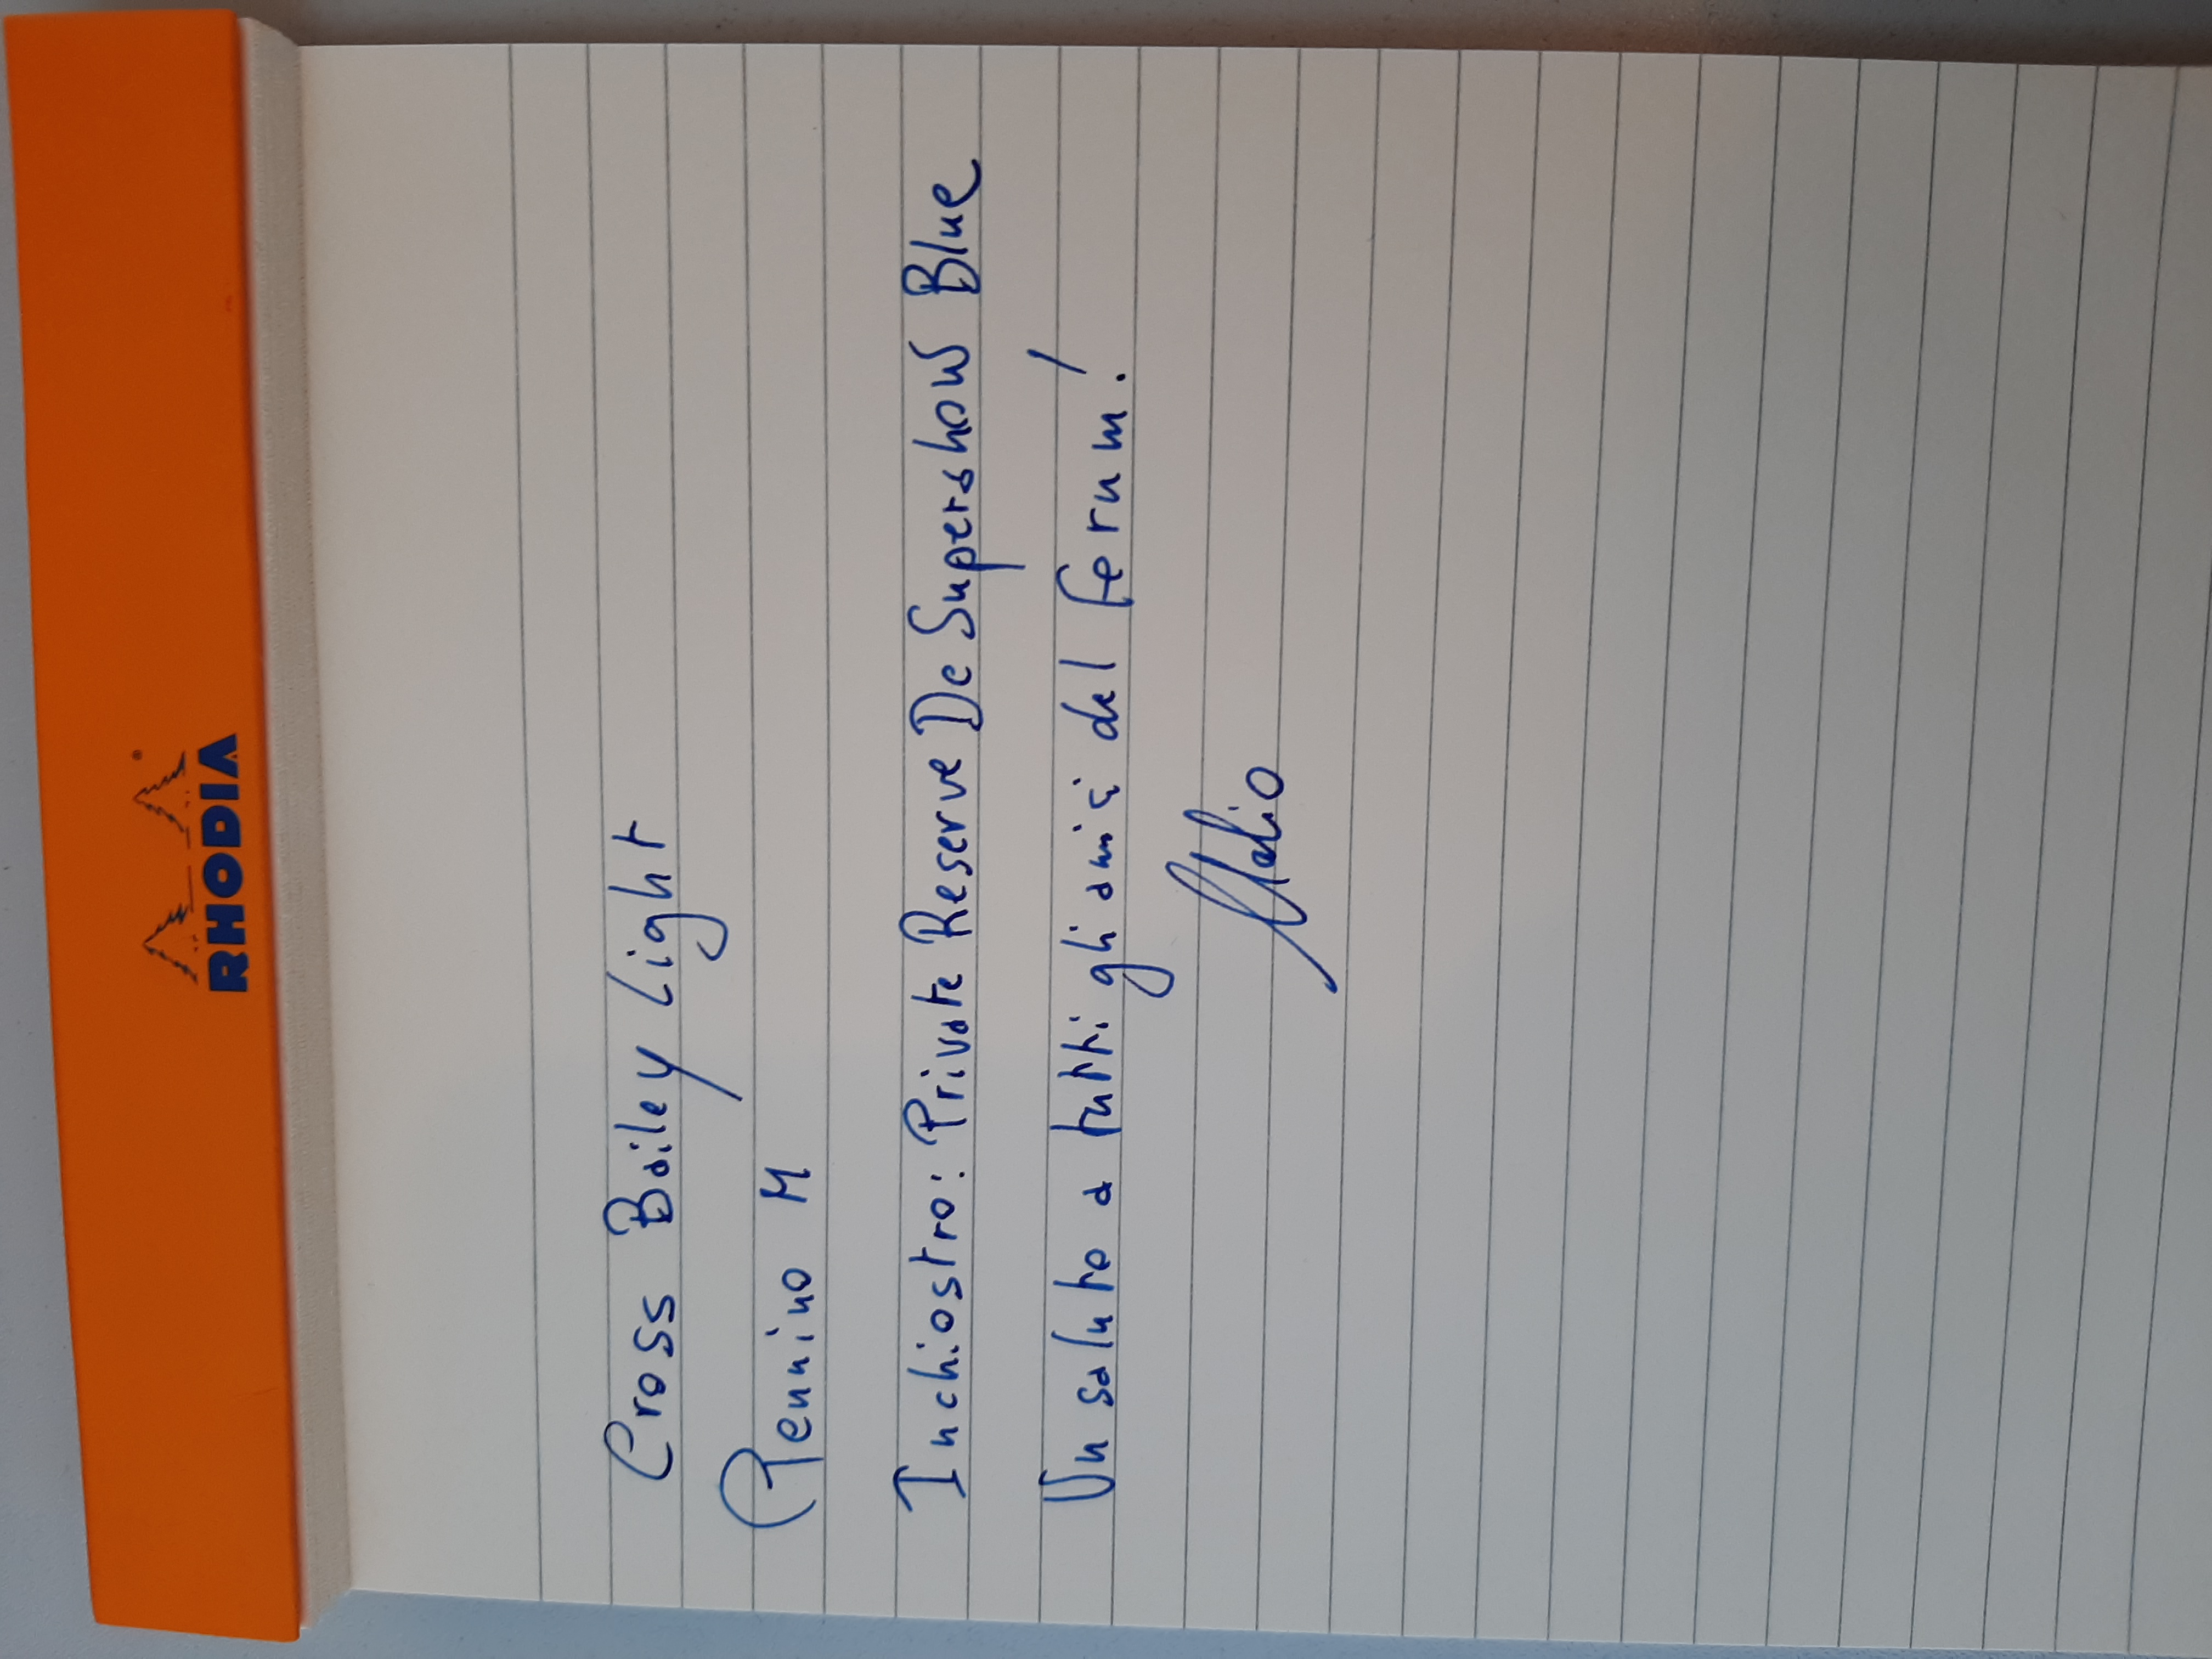 RHODIA
Cross Bailey Light
Pennino M
Inchiostro: Private Reserve DC Supershow Blue
Un saluto a tutti gli amici del forum!